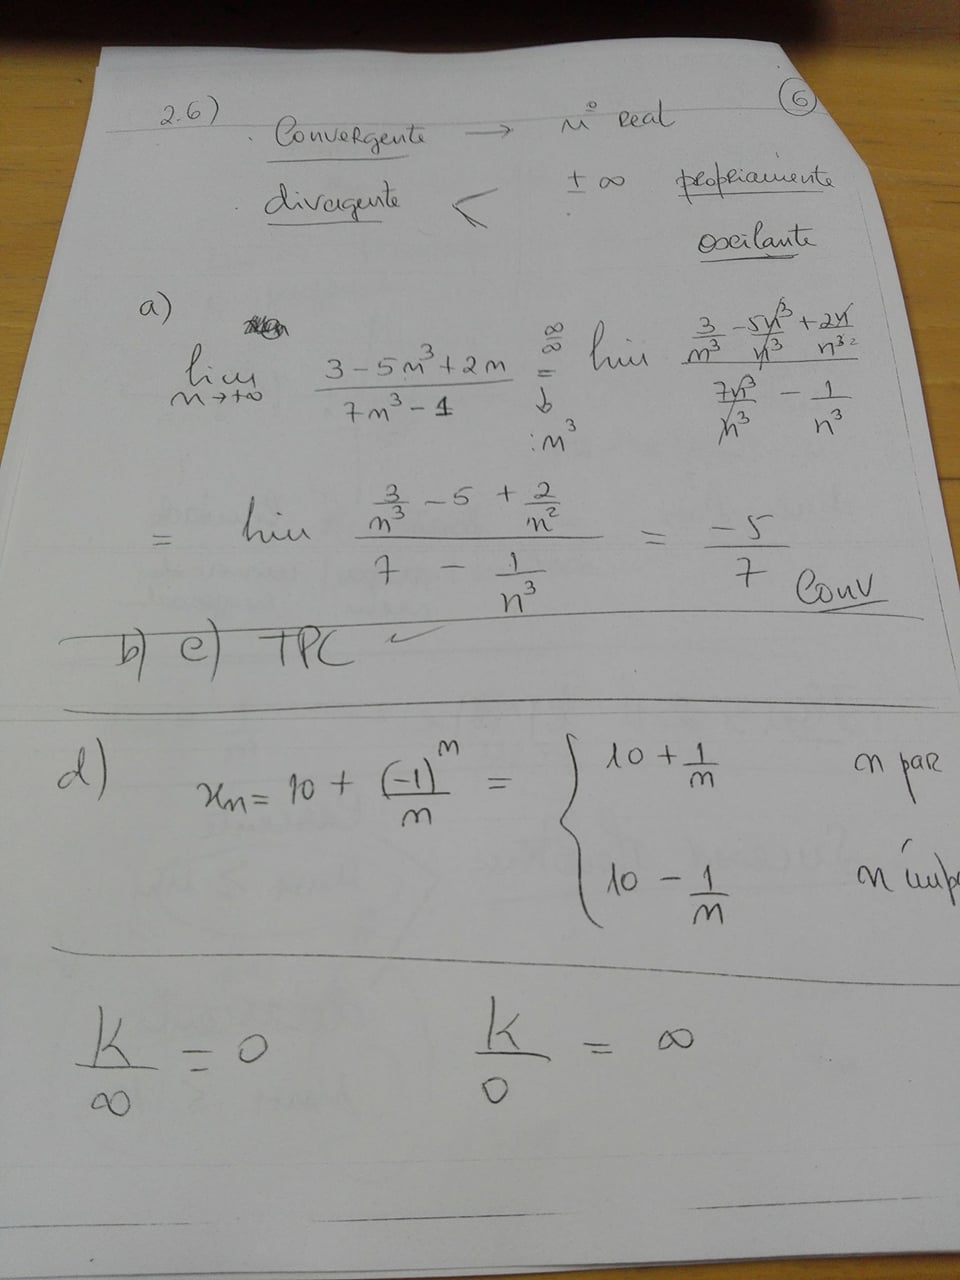 2.6) 6
. Convergente → nº real
. divagente < ± ∞ propriamente
oscilante
a)
lim n→+∞ (3 - 5n³ + 2n)/(7n³ - 1) ∞/∞ = lim (3/n³ - 5n³/n³ + 2n/n³²)/(7n³/n³ - 1/n³)
↓
:n³
= lim (3/n³ - 5 + 2/n²)/(7 - 1/n³) = -5/7 Conv
b) c) TPC ✓
d) xn = 10 + (-1)ⁿ/n = { 10 + 1/n n par
10 - 1/n n ímpa
K/∞ = 0 K/0 = ∞